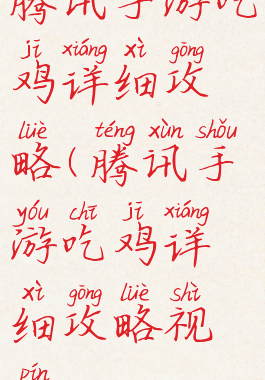 腾讯手游吃
jī xiáng xì gōng
鸡详细攻
lüè téng xùn shǒu
略(腾讯手
yóu chī jī xiáng
游吃鸡详
xì gōng lüè shì
细攻略视
pín